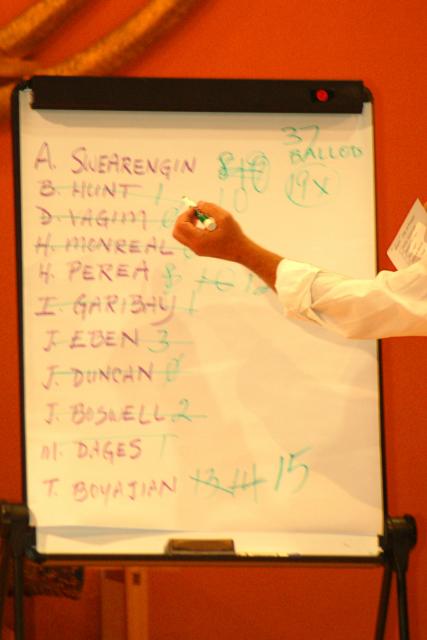 37
BALLOD
19x
A. SWEARENGIN 8 10
B. HUNT 1 10
D. VAGIM 0
H. MONREAL
H. PEREA 8 10
I. GARIBAY 1
J. EBEN 3
J. DUNCAN 0
J. BOSWELL 2
M. DAGES 1
T. BOYAJIAN 13 14 15